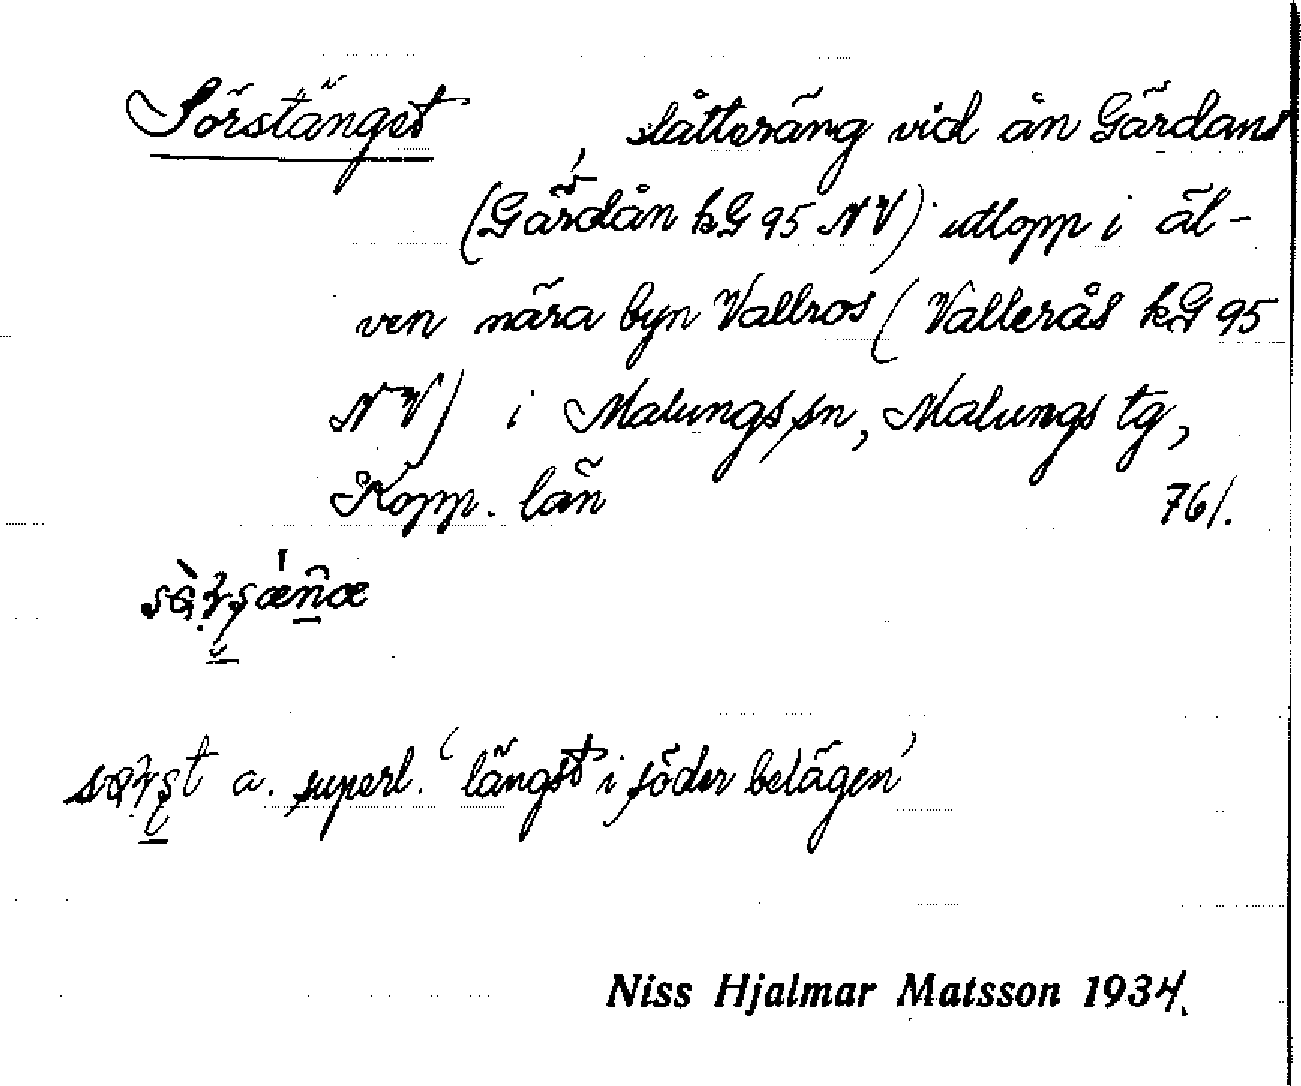 Sörstänget, slåtteräng vid ån Gärdans
(Gärdån kG 95 NV) utlopp i äl-
ven nära byn Vallros (Vallerås kG 95
NV) i Malungs sn, Malungs tg,
Kopp. län 761.
a. superl. 'längst i söder belägen'
Niss Hjalmar Matsson 1934.